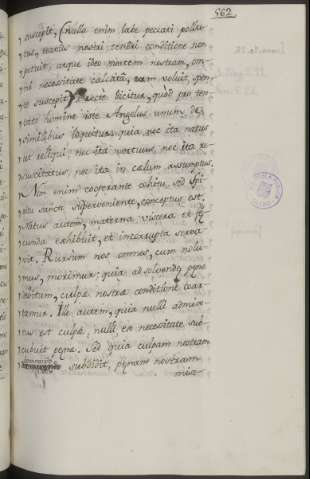 562
suscepit, (nulla enim labe peccati pollu-
tus, reatus nostri teneri conditione non
potuit, atque ideo mortem nostram, om-
ni necessitate calcata, eam voluit, spon-
te suscepit) recte dicitur, quod pro ten-
tato homine iste Angelus unum de
similibus loquitur, quia nec ita natus
ut reliqui, nec ita mortuus, nec ita re-
suscitatus, nec ita in cælum assumptus.
Non enim cooperante cohitu, sed Spi-
ritu sancto superveniente, conceptus est.
Natus autem, materna viscera et fę
cunda exhibuit, et incorrupta serva
vit. Rursum nos omnes, cum nolu-
mus, morimur: quia ad solvendę pęnę
debitum, culpę nostrę conditione coar-
tamur. Ille autem, quia nulli admix-
tus est culpę, nulli ex necessitate suc-
cubuit pęnę. Sed quia culpam nostram
subdidit, pęnam nostram
mise-